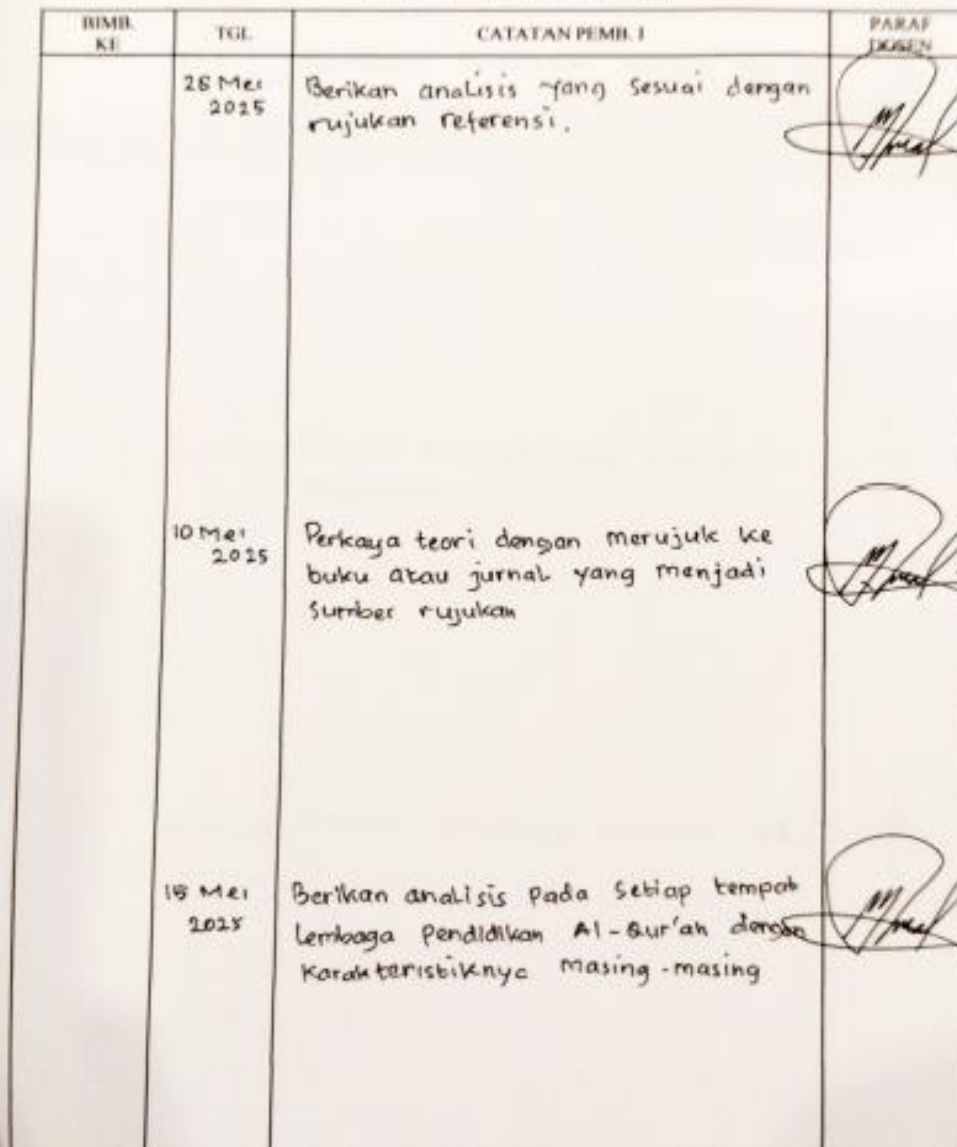 BIMB. KE
TGL.
CATATAN PEMB. I
PARAF DOSEN
Mei
2025
Berikan analisis yang sesuai dengan
rujukan referensi.
10 Mei
2025
Perkaya teori dengan merujuk ke
buku atau jurnal yang menjadi
Sumber rujukan
Mei
2025
Berikan analisis Pada Setiap tempat
Lembaga Pendidikan Al-Qur'an dengan
Karakteristiknya masing-masing